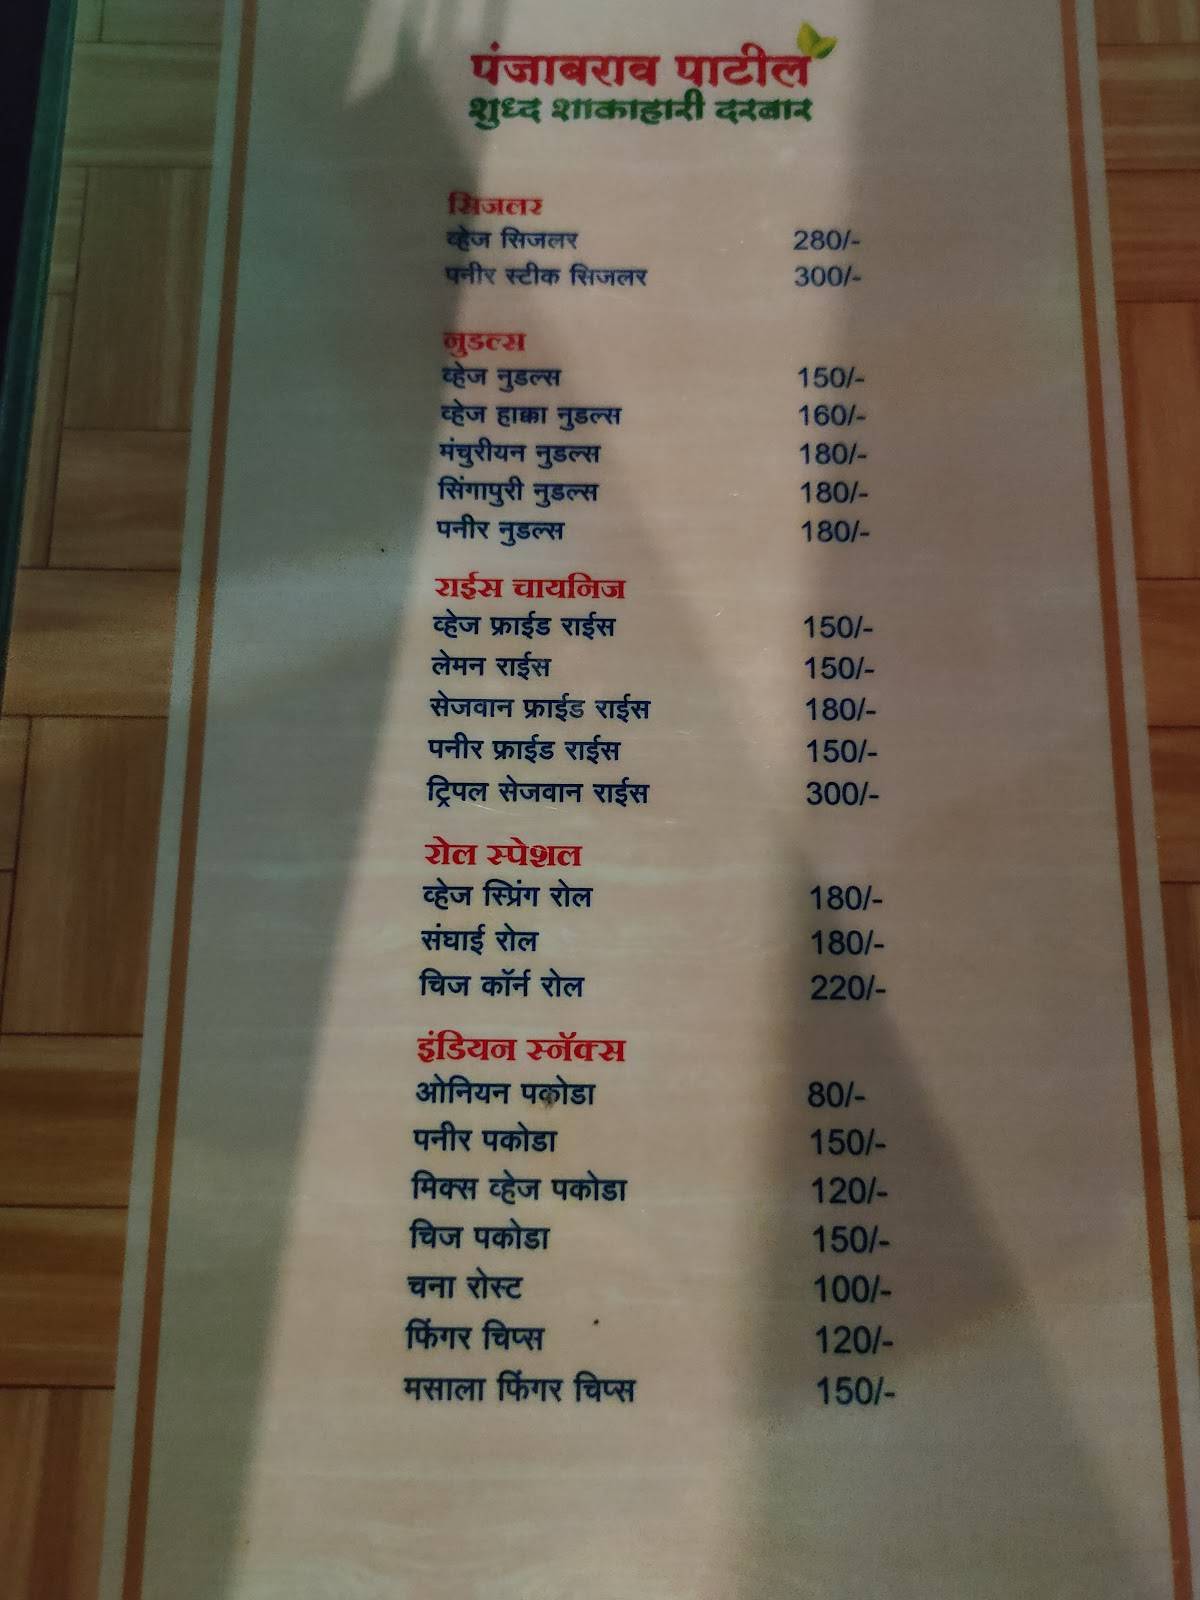 पंजाबराव पाटील
शुध्द शाकाहारी दरबार
सिजलर
व्हेज सिजलर 280/-
पनीर स्टीक सिजलर 300/-
नुडल्स
व्हेज नुडल्स 150/-
व्हेज हाक्का नुडल्स 160/-
मंचुरीयन नुडल्स 180/-
सिंगापुरी नुडल्स 180/-
पनीर नुडल्स 180/-
राईस चायनिज
व्हेज फ्राईड राईस 150/-
लेमन राईस 150/-
सेजवान फ्राईड राईस 180/-
पनीर फ्राईड राईस 150/-
ट्रिपल सेजवान राईस 300/-
रोल स्पेशल
व्हेज स्प्रिंग रोल 180/-
संघाई रोल 180/-
चिज कॉर्न रोल 220/-
इंडियन स्नॅक्स
ओनियन पकोडा 80/-
पनीर पकोडा 150/-
मिक्स व्हेज पकोडा 120/-
चिज पकोडा 150/-
चना रोस्ट 100/-
फिंगर चिप्स 120/-
मसाला फिंगर चिप्स 150/-